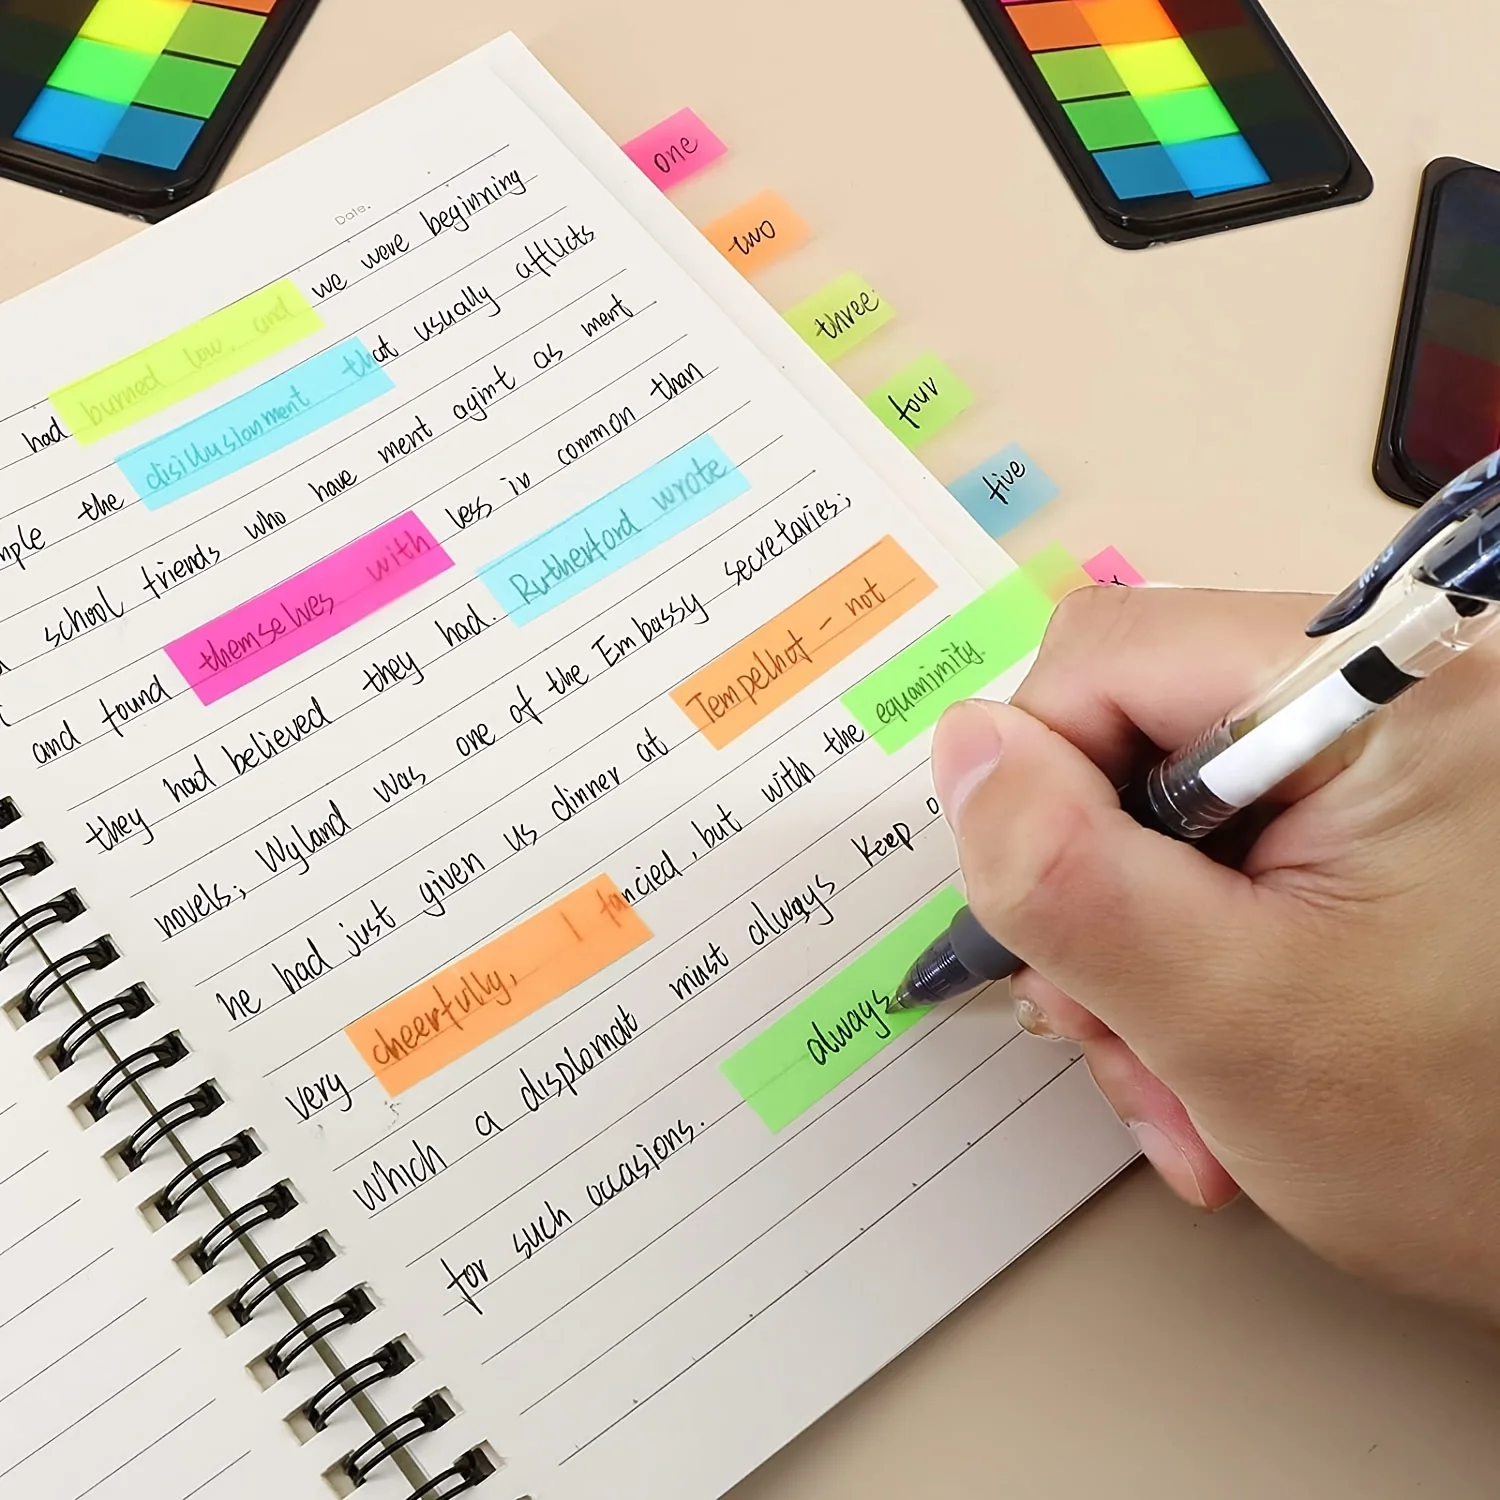 Date.
had burned low, and we were beginning
mple the disillusionment that usually afflicts
school friends who have ment agint as ment
and found themselves with less in common than
they had believed they had. Rutherford wrote
novels; Wyland was one of the Embassy secretaries;
he had just given us dinner at Tempelhof - not
very cheerfully, I fancied, but with the equanimity.
which a displomat must always keep
for such occasions. always
one
two
three
four
five